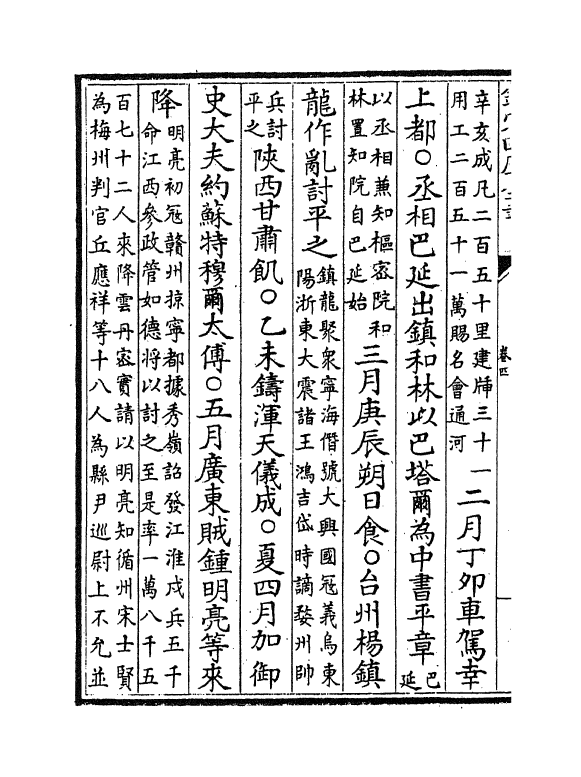 卷四
辛亥成凡二百五十里建牐三十一
用工二百五十一萬賜名會通河
二月丁卯車駕幸
上都○丞相巴延出鎮和林以巴塔爾為中書平章
巴
延
以丞相兼知樞密院和
林置知院自巴延始
三月庚辰朔日食○台州楊鎮
龍作亂討平之
鎮龍聚衆寧海僭號大興國冦義烏東
陽浙東大震諸王鴻吉岱時謫婺州帥
兵討
平之
陝西甘肅飢○乙未鑄渾天儀成○夏四月加御
史大夫約蘇特穆爾太傅○五月廣東賊鍾明亮等來
降
明亮初冦贛州掠寧都據秀嶺詔發江淮戍兵五千
命江西參政管如德將以討之至是率一萬八千五
百七十二人來降雲丹密實請以明亮知循州宋士賢
為梅州判官丘應祥等十八人為縣尹巡尉上不允並